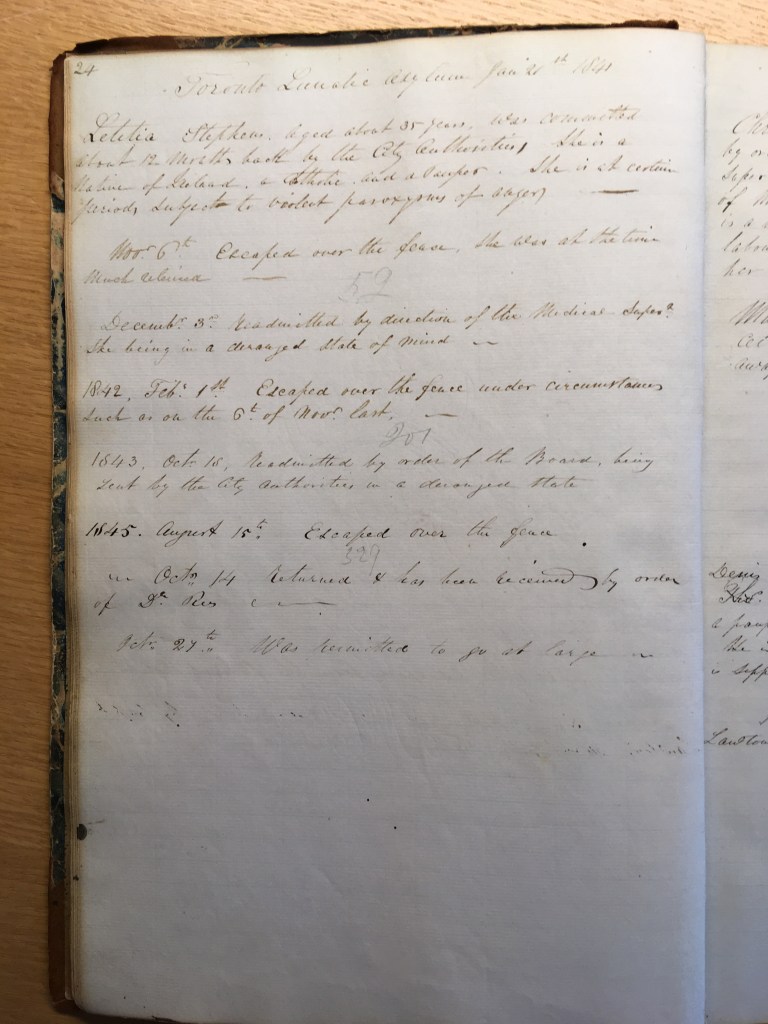 24
Toronto Lunatic Asylum Jan 21st 1841
Letitia Stephens, Aged about 35 years, was committed
about 12 Months back by the City Authorities, She is a
Native of Ireland, a Catholic and a Pauper. She is at certain
periods subject to violent paroxysms of anger
Novr 6th Escaped over the fence, She was at the time
Much relieved
52
Decembr 3rd Readmitted by direction of the Medical Superr
She being in a deranged state of Mind
1842, Feby 1st Escaped over the fence under circumstances
such as on the 6th of Novr last,
201
1843, Octr 18, Readmitted by order of the Board, being
sent by the City Authorities in a deranged state
1845. August 15th Escaped over the fence
329
Octr 14 Returned & has been received by order
of Dr Rees
Octr 27th Was permitted to go at large
by or
Super
of
is a
labou
her
away
a paup
He is
is supp